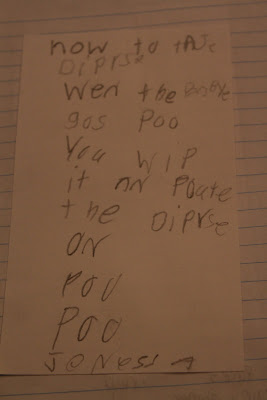 now to tAJe
DiPrse
Wen the BaBye
gos Poo
You WiP
it nn Poute
the DiPrse
on
Poo
Poo
JoNess